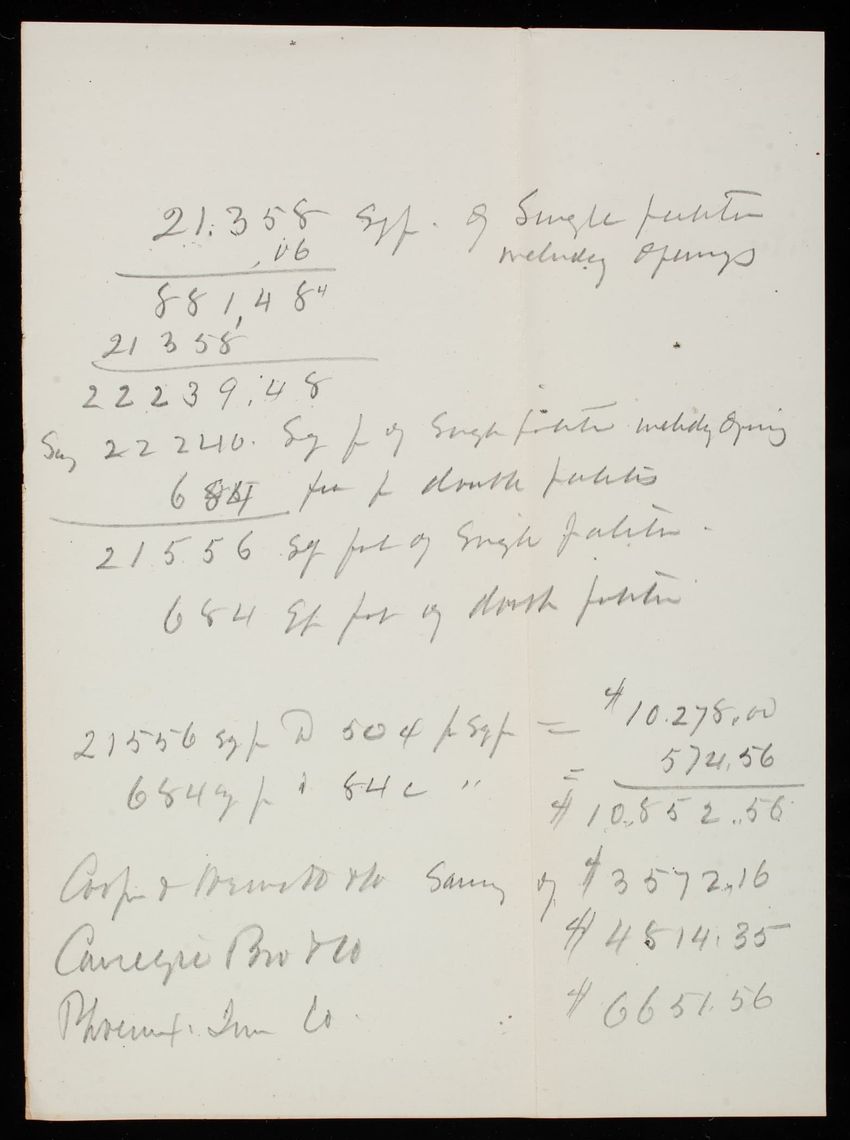 21.358 Sq f. of Single partition
.06 including openings
881,484
21 358
22239.48
Say 22240. Sq f of Single partition including Opening
684 for double partitions
21556 Sq feet of Single partition.
684 Sq feet of double partition
21556 Sq f @ 50 f Sq f = $10.278.00
684 Sq f @ 84 c " = 574.56
$10.852.56
Cooper & Hewitt & Co Saving of $3572.16
Carnegie Bro & Co $4814.35
Phoenix Iron Co. $6651.56